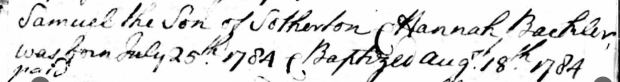 Samuel the Son of Sotherton & Hannah Backler
was born July 25th 1784 & Baptized Augt 18th 1784
paid